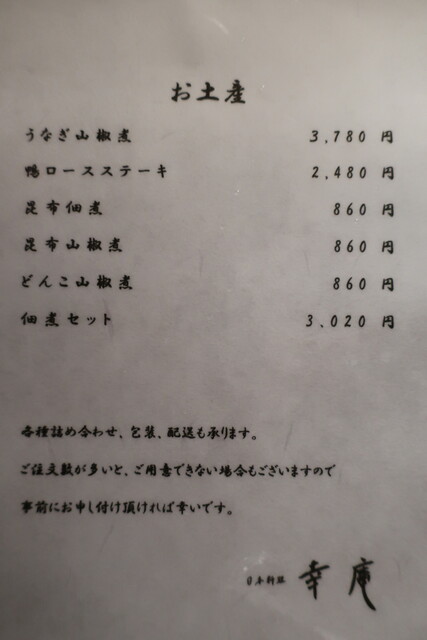 お土産
うなぎ山椒煮 3,780 円
鴨ロースステーキ 2,480 円
昆布佃煮 860 円
昆布山椒煮 860 円
どんこ山椒煮 860 円
佃煮セット 3,020 円
各種詰め合わせ、包装、配送も承ります。
ご注文数が多いと、ご用意できない場合もございますので
事前にお申し付け頂ければ幸いです。
日本料理 幸庵